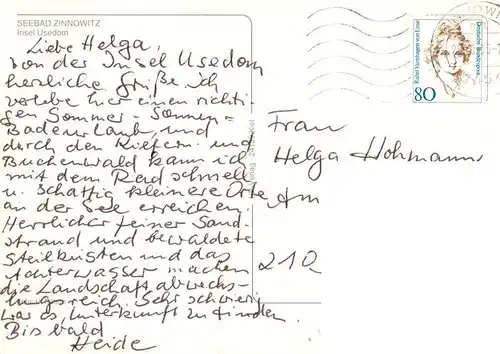 SEEBAD ZINNOWITZ
Insel Usedom
Liebe Helga,
von der Insel Usedom
herzliche Grüße. ich
verlebe hier einen richti-
gen Sommer-Sonnen-
Badeurlaub, und
durch den Kiefern- und
Buchenwald kann ich
mit dem Rad schnell
u. schattig kleinere Orte
an der See erreichen.
Herrlicher feiner Sand-
strand und bewaldete
Steilküsten und das
Achterwasser machen
die Landschaft abwechs-
lungsreich. Sehr schwierig
war es, Unterkunft zu finden.
Bis bald
Heide
Deutsche Bundespost
Rahel Varnhagen von Ense
80
Frau
Helga Hohmann
Am
210